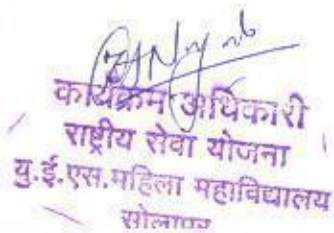 कार्यक्रम अधिकारी
राष्ट्रीय सेवा योजना
यु.ई.एस.महिला महाविद्यालय
सोलापूर